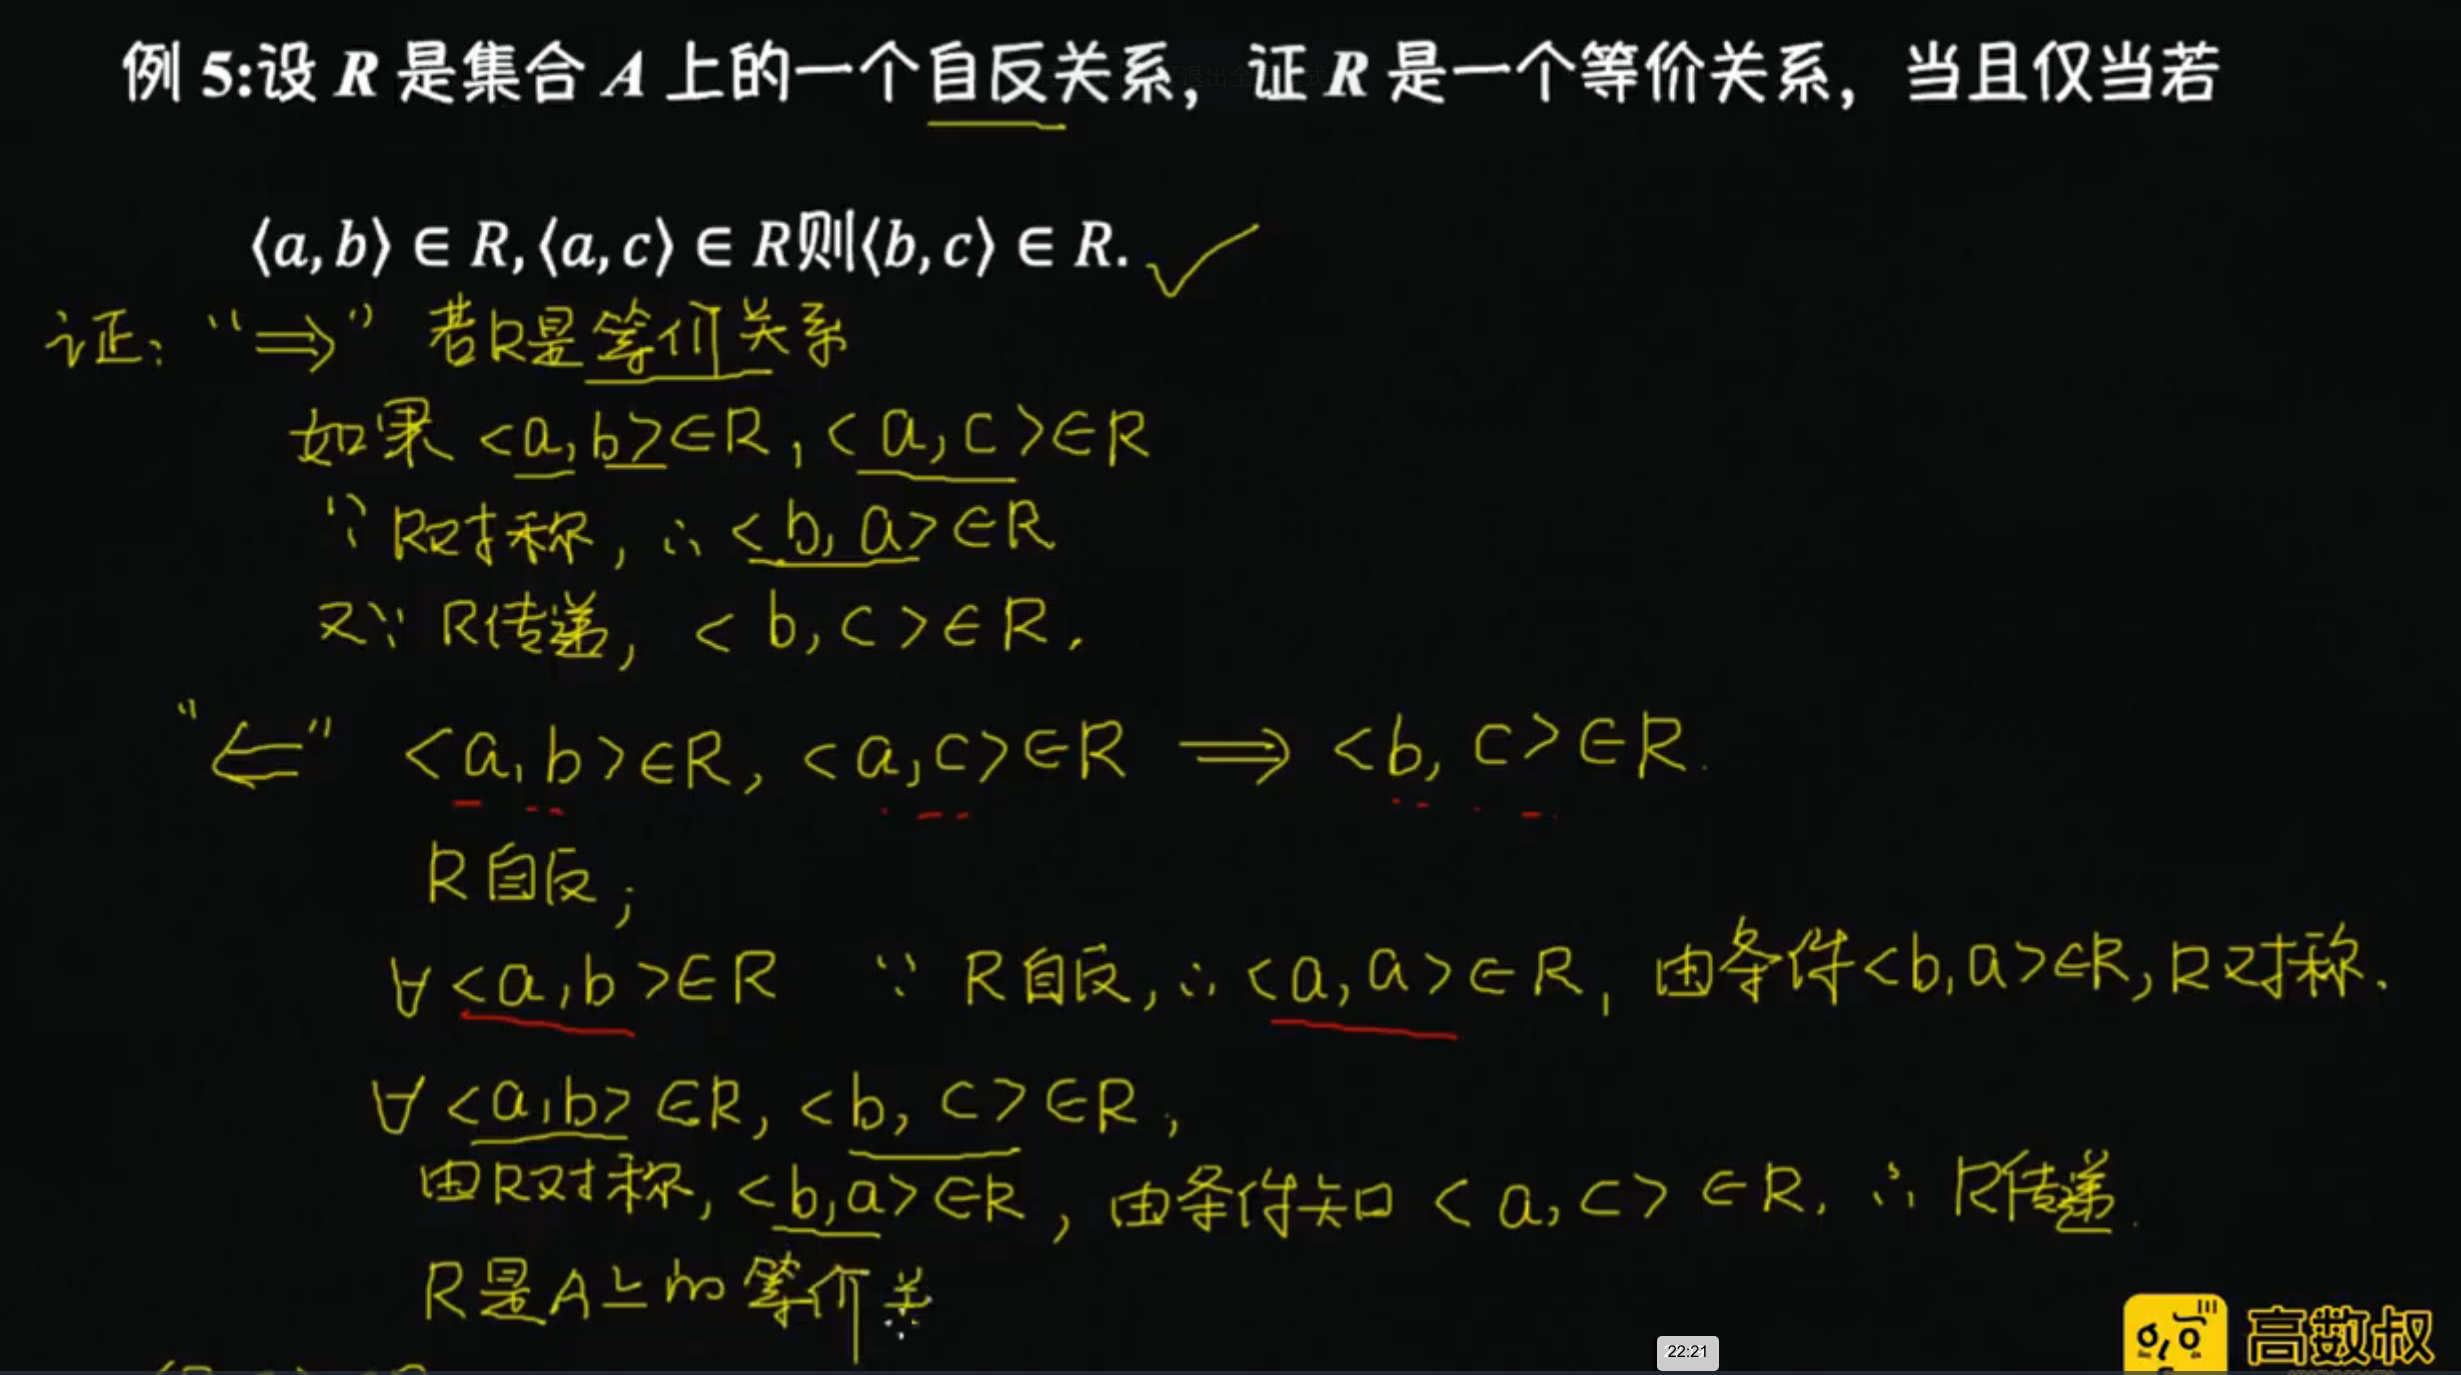 例 5:设 R 是集合 A 上的一个自反关系，证 R 是一个等价关系，当且仅当若
⟨a,b⟩∈R,⟨a,c⟩∈R则⟨b,c⟩∈R.
证: "⇒" 若R是等价关系
如果<a,b>∈R,<a,c>∈R
∵R对称,∴<b,a>∈R
又∵R传递,<b,c>∈R.
"⇐" <a,b>∈R,<a,c>∈R ⟹ <b,c>∈R.
R自反;
∀<a,b>∈R ∵R自反,∴<a,a>∈R,由条件<b,a>∈R,R对称.
∀<a,b>∈R,<b,c>∈R,
由R对称,<b,a>∈R,由条件知<a,c>∈R.∴R传递.
R是A上的等价关
22:21
高数叔